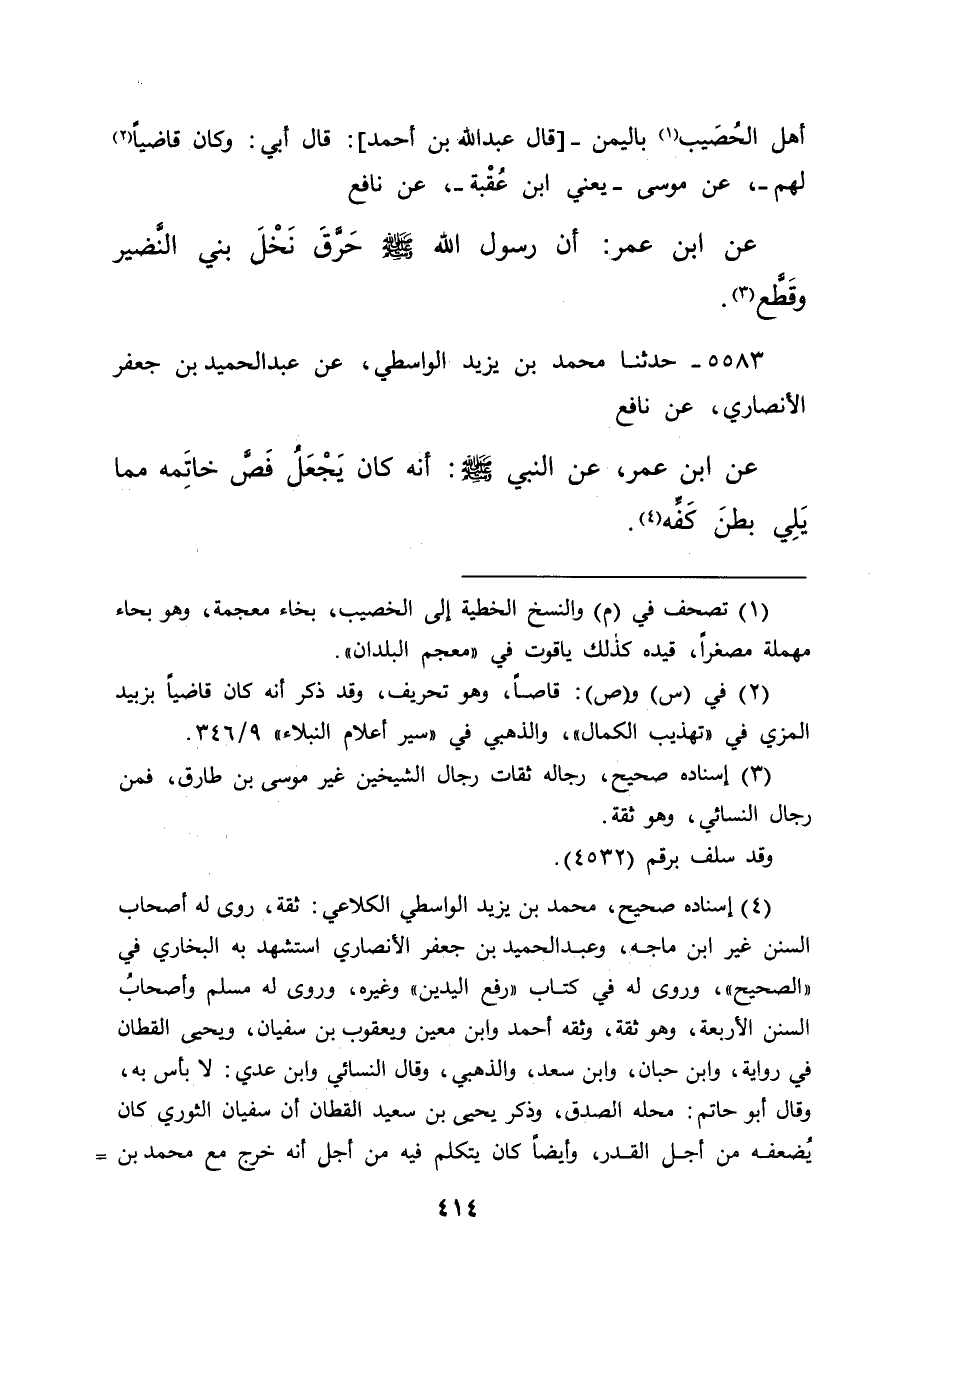 أهل الحُصَيب(١) باليمن ـ [قال عبدالله بن أحمد]: قال أبي: وكان قاضياً(٢)
لهم ـ، عن موسى ـ يعني ابن عُقْبة ـ، عن نافع
عن ابن عمر: أن رسول الله ﷺ حَرَّقَ نَخْلَ بني النَّضير
وقَطَّع(٣).
٥٥٨٣ ـ حدثنـا محمد بن يزيد الواسطي، عن عبدالحميد بن جعفر
الأنصاري، عن نافع
عن ابن عمر، عن النبي ﷺ: أنه كان يَجْعَلُ فَصَّ خاتَمِه مما
يَلِي بطنَ كَفِّه(٤).
(١) تصحف في (م) والنسخ الخطية إلى الخصيب، بخاء معجمة، وهو بحاء
مهملة مصغراً، قيده كذٰلك ياقوت في «معجم البلدان».
(٢) في (س) و(ص): قاصـاً، وهو تحريف، وقد ذكر أنه كان قاضياً بزبيد
المزي في «تهذيب الكمال»، والذهبي في «سير أعلام النبلاء» ٣٤٦/٩.
(٣) إسناده صحيح، رجاله ثقات رجال الشيخين غير موسى بن طارق، فمن
رجال النسائي، وهو ثقة.
وقد سلف برقم (٤٥٣٢).
(٤) إسناده صحيح، محمد بن يزيد الواسطي الكلاعي: ثقة، روى له أصحاب
السنن غير ابن ماجـه، وعبـدالحميد بن جعفر الأنصاري استشهد به البخاري في
«الصحيح»، وروى له في كتـاب «رفع اليدين» وغيره، وروى له مسلم وأصحابُ
السنن الأربعة، وهو ثقة، وثقه أحمد وابن معين ويعقوب بن سفيان، ويحيى القطان
في رواية، وابن حبان، وابن سعد، والذهبي، وقال النسائي وابن عدي: لا بأس به،
وقال أبو حاتم: محله الصدق، وذكر يحيى بن سعيد القطان أن سفيان الثوري كان
يُضعفـه من أجـل القـدر، وأيضاً كان يتكلم فيه من أجل أنه خرج مع محمد بن =
٤١٤